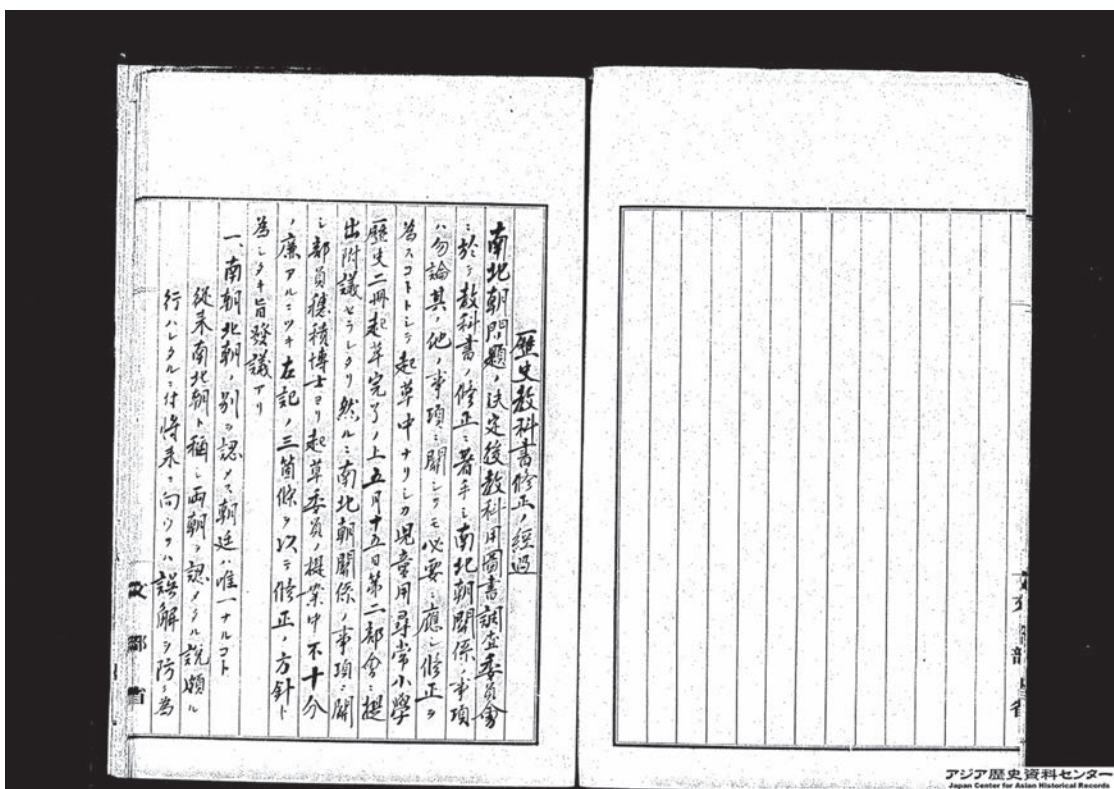 歴史教科書修正ノ經過
南北朝問題ノ決定後教科用圖書調査委員會
ニ於テ教科書ノ修正ニ著手シ南北朝關係ノ事項
ハ勿論其ノ他ノ事項ニ關シテモ必要ニ應シ修正ヲ
為スコトトシテ起草中ナリシカ児童用尋常小學
歴史二冊起草完了ノ上五月十五日第二部會ニ提
出附議セラレタリ然ルニ南北朝關係ノ事項ニ關
シ部員穂積博士ヨリ起草委員ノ提案中不十分
ノ廉アルニツキ左記ノ三箇條ヲ以テ修正ノ方針ト
為シタキ旨發議アリ
一、南朝北朝ノ別ヲ認メス朝廷ハ唯一ナルコト
従来南北朝ト稱シ両朝ヲ認メタル説頗ル
行ハレタルニ付将来ニ向ツテハ誤解ヲ防ク為
文部省
文部省
アジア歴史資料センター
Japan Center for Asian Historical Records